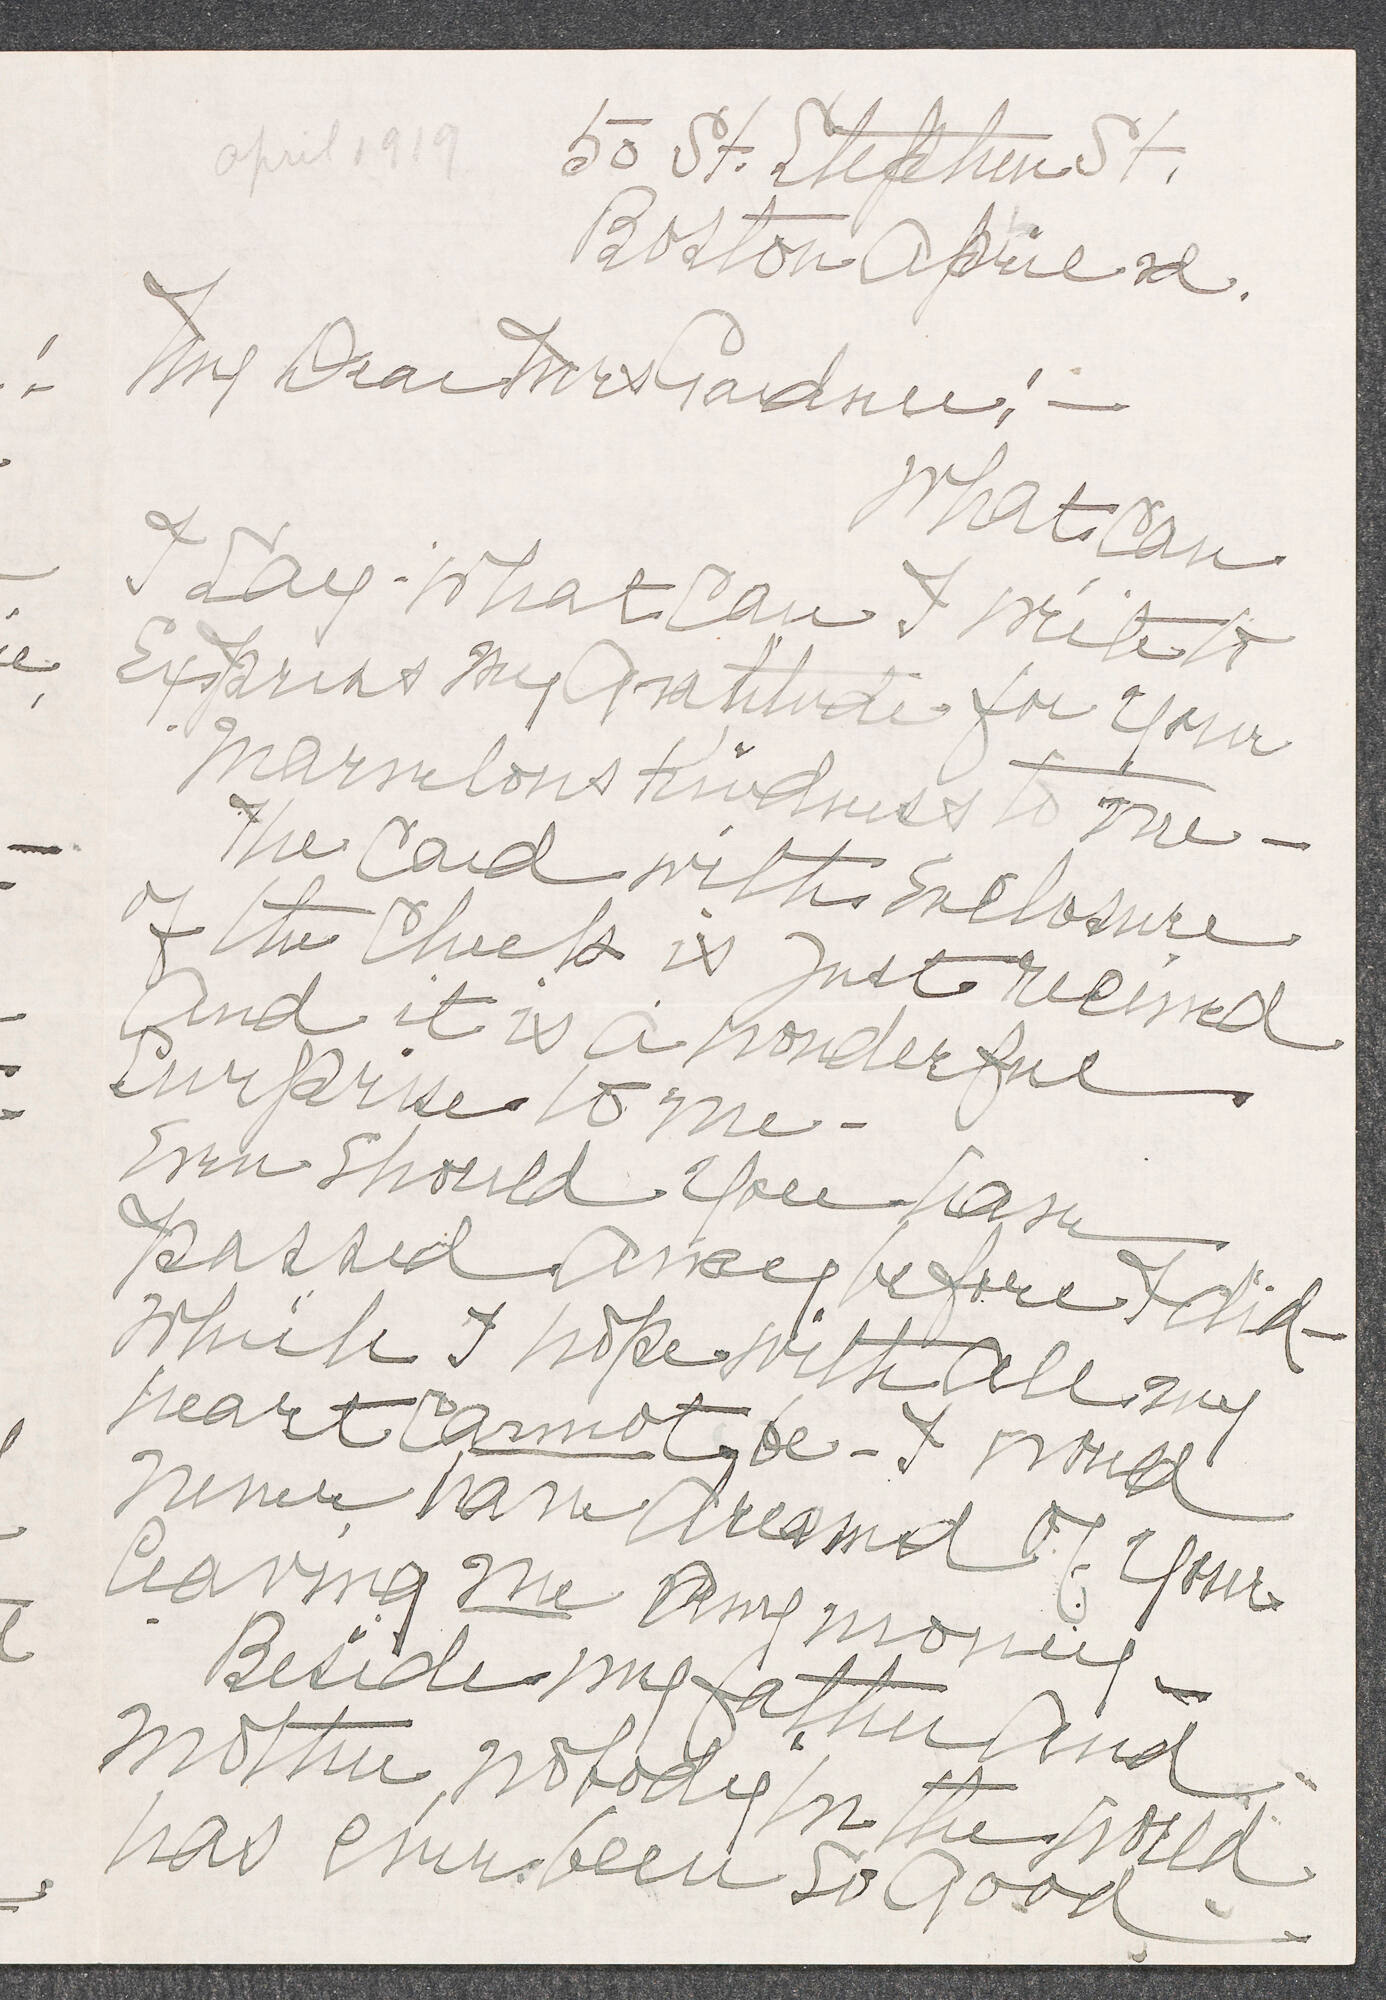 april 1919
50 St. Stephen St.
Boston April 2d.
My Dear Mrs Gardner;—
What Can
I Say - What Can I write to
Express my Gratitude for your
Marvelous Kindness to me—
The Card with Enclosure
of the Check is just received
And it is a wonderful
Surprise to me -
Even Should you have
passed Away before I did—
Which I hope with All my
heart Cannot be - I would
never have dreamed of your
leaving me Any money—
Beside my father And
Mother, nobody in the world
has ever been So Good